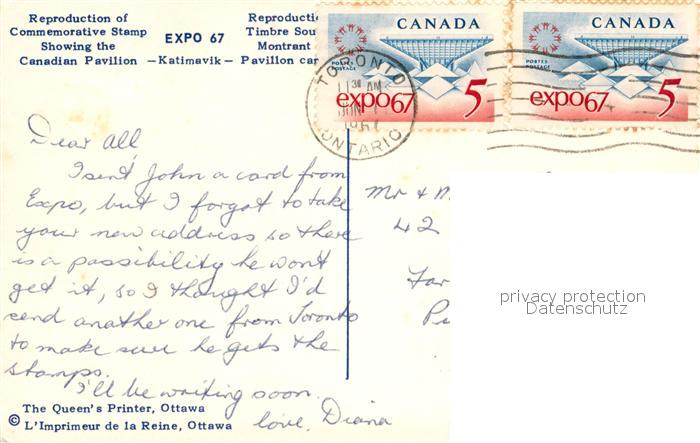 Reproduction of
Commemorative Stamp
Showing the
Canadian Pavilion
EXPO 67
—Katimavik—
Reproducti
Timbre Sou
Montrant
Pavillon ca
CANADA
POSTES
POSTAGE
expo67 5
CANADA
POSTES
POSTAGE
expo67 5
TORONTO
11 30 AM
1967
ONTARIO
Dear All
I sent John a card from
Expo, but I forgot to take
your new address so there
is a possibility he wont
get it, so I thought I'd
send another one from Toronto
to make sure he gets the
stamps.
I'll be writing soon.
love, Diana
Mr & M
42
Far
privacy protection
Datenschutz
The Queen's Printer, Ottawa
© L'Imprimeur de la Reine, Ottawa